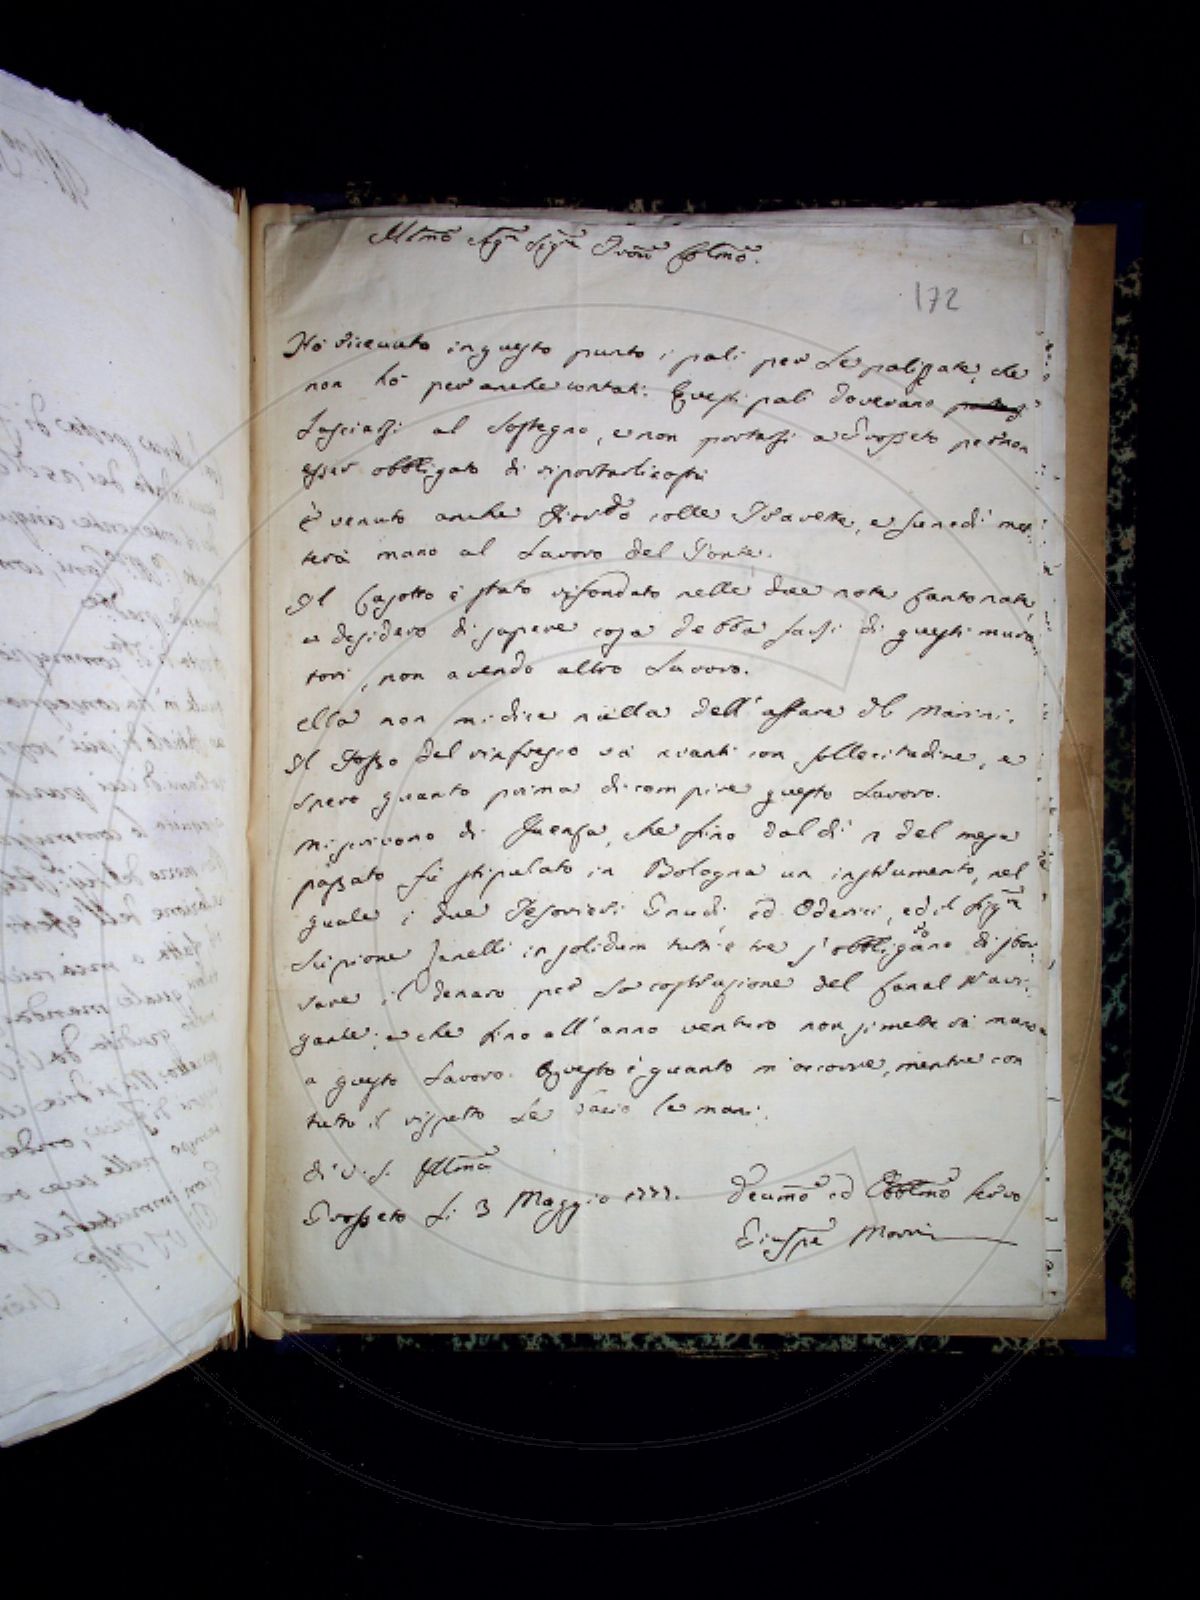 Illmo Sigre Sigre Pron Colmo.
172
Hò ricevuto in questo punto i pali per le palizzate, che
non hò per anche contati. Questi pali dovevano
Lasciarsi al Sostegno, e non portarsi a Grosseto per non
esser obbligato di riportarli costì
È venuto anche Giordo colle Travette, e Lunedì met:
terà mano al Lavoro del Ponte.
Il Casotto è stato rifondato nelle due note Cantonate,
e desidero di sapere cosa debba farsi di questi mura
tori, non avendo altro Lavoro.
Ella non mi dice niella dell'affare di Marini.
Il Fosso del rinfresco và avanti con sollecitudine, e
spero quanto prima di compire questo Lavoro.
Mi scrivono di Faenza, che fino dal dì 2 del mese
passato fù stipulato in Bologna un instrumento, nel
quale i due Tesorieri Gnudi, ed Oderici, ed il Sigre
Scipione Zanelli in solidum tutti e tre s'obbligano di sbor:
sare il denaro per la costruzione del Canal Navi:
gante; e che fino all'anno venturo non si metterà mano
a questo Lavoro. Questo è quanto m'occorre, mentre con
tutto il rispetto Le bacio le mani.
di V. S. Illma
Grosseto Li 3 Maggio 1777. Devmo ed Obblmo Servo
Giuspe Morri